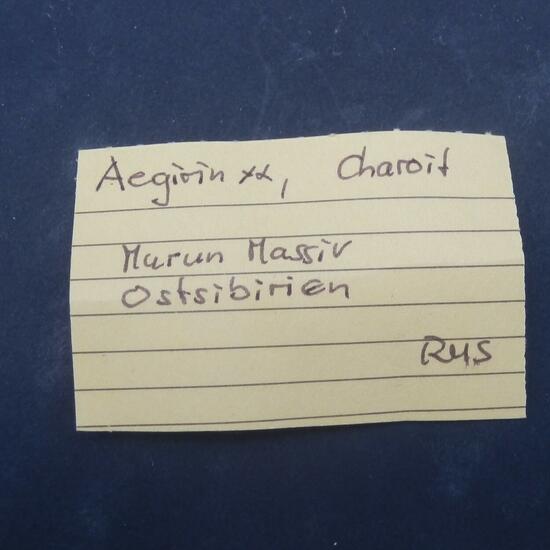 Aegirin xx, Charoit
Murun Massiv
Ostsibirien
RUS